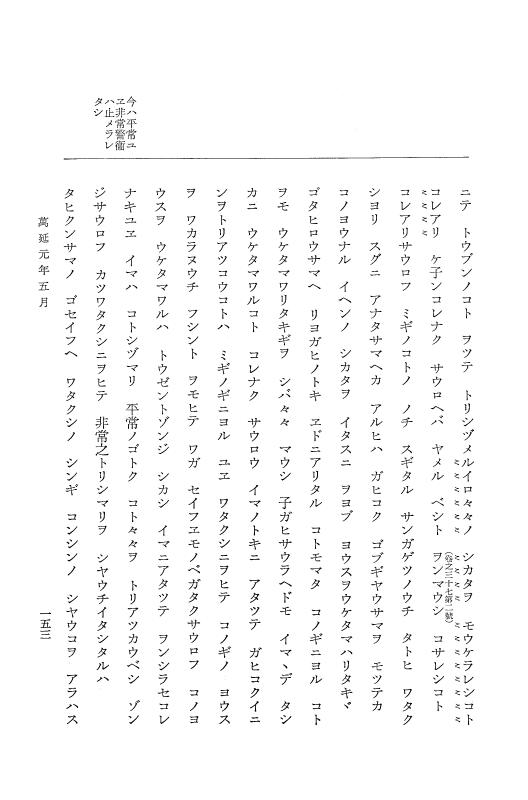 今ハ平常ユ
ヱ非常警衞
ハ止メラレ
タシ
ニテ トウブンノコト ヲツテ トリシヅメルイロ々々ノ シカタヲ モウケラレシコト
コレアリ ケ子ンコレナク サウロヘバ ヤメル ベシト ヲンマウシ コサレシコト
(卷之三十七第二號)
コレアリサウロフ ミギノコトノ ノチ スギタル サンガゲツノウチ タトヒ ワタク
シヨリ スグニ アナタサマヘカ アルヒハ ガヒコク ゴブギヤウサマヲ モツテカ
コノヨウナル イヘンノ シカタヲ イタスニ ヲヨブ ヨウスヲウケタマハリタキヾ
ゴタヒロウサマヘ リヨガヒノトキ ヱドニアリタル コトモマタ コノギニヨル コト
ヲモ ウケタマワリタキギヲ シバ々々 マウシ 子ガヒサウラヘドモ イマヽデ タシ
カニ ウケタマワルコト コレナク サウロウ イマノトキニ アタツテ ガヒコクイニ
ンヲトリアツコウコトハ ミギノギニヨル ユヱ ワタクシニヲヒテ コノギノ ヨウス
ヲ ワカラヌウチ フシント ヲモヒテ ワガ セイフヱモノベガタクサウロフ コノヨ
ウスヲ ウケタマワルハ トウゼントゾンジ シカシ イマニアタツテ ヲンシラセコレ
ナキユヱ イマハ コトシヅマリ 平常ノゴトク コト々々ヲ トリアツカウベシ ゾン
ジサウロフ カツワタクシニヲヒテ 非常之トリシマリヲ シヤウチイタシタルハ
タヒクンサマノ ゴセイフヘ ワタクシノ シンギ コンシンノ シヤウコヲ アラハス
萬延元年五月
一五三